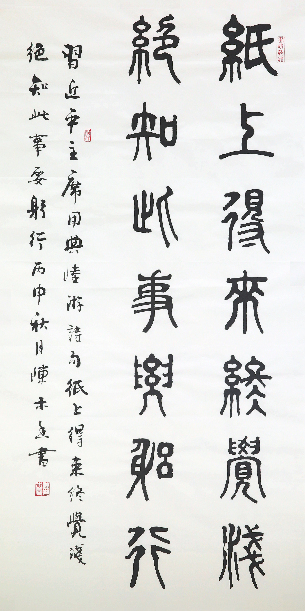 紙上得来終覺淺
絕知此事要躬行
習近平主席用典陸游詩句紙上得来终覺淺
绝知此事要躬行丙申秋月陳木書